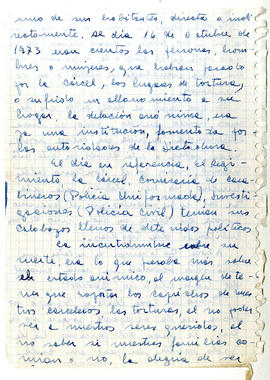 uno de sus habitantes, directa o indi
rectamente. Ese dia 16 de Octubre de
1973 eran cientos las personas, hom
bres o mujeres, que habian pasado
por la cárcel, los lugares de tortura,
o sufrido un allanamiento a su
hogar, la delación anónima, era
ya una institución, fomentada por
las autoridades de la Dictadura.
El dia en referencia, el Regi-
miento la Cárcel, comisaría de cara
bineros (Policia Uniformada), investi
gaciones (Policia civil) tenian sus
calabozos llenos de detenidos politicos
La incertidumbre sobre su
suerte, era lo que pesaba más sobre
el estado animico, al margen de te-
ner que soportar los caprichos de nues
tros carceleros, las torturas, el no poder
ver a nuestros seres queridos, el
no saber si nuestras familias co
mian o no, la alegria de ser